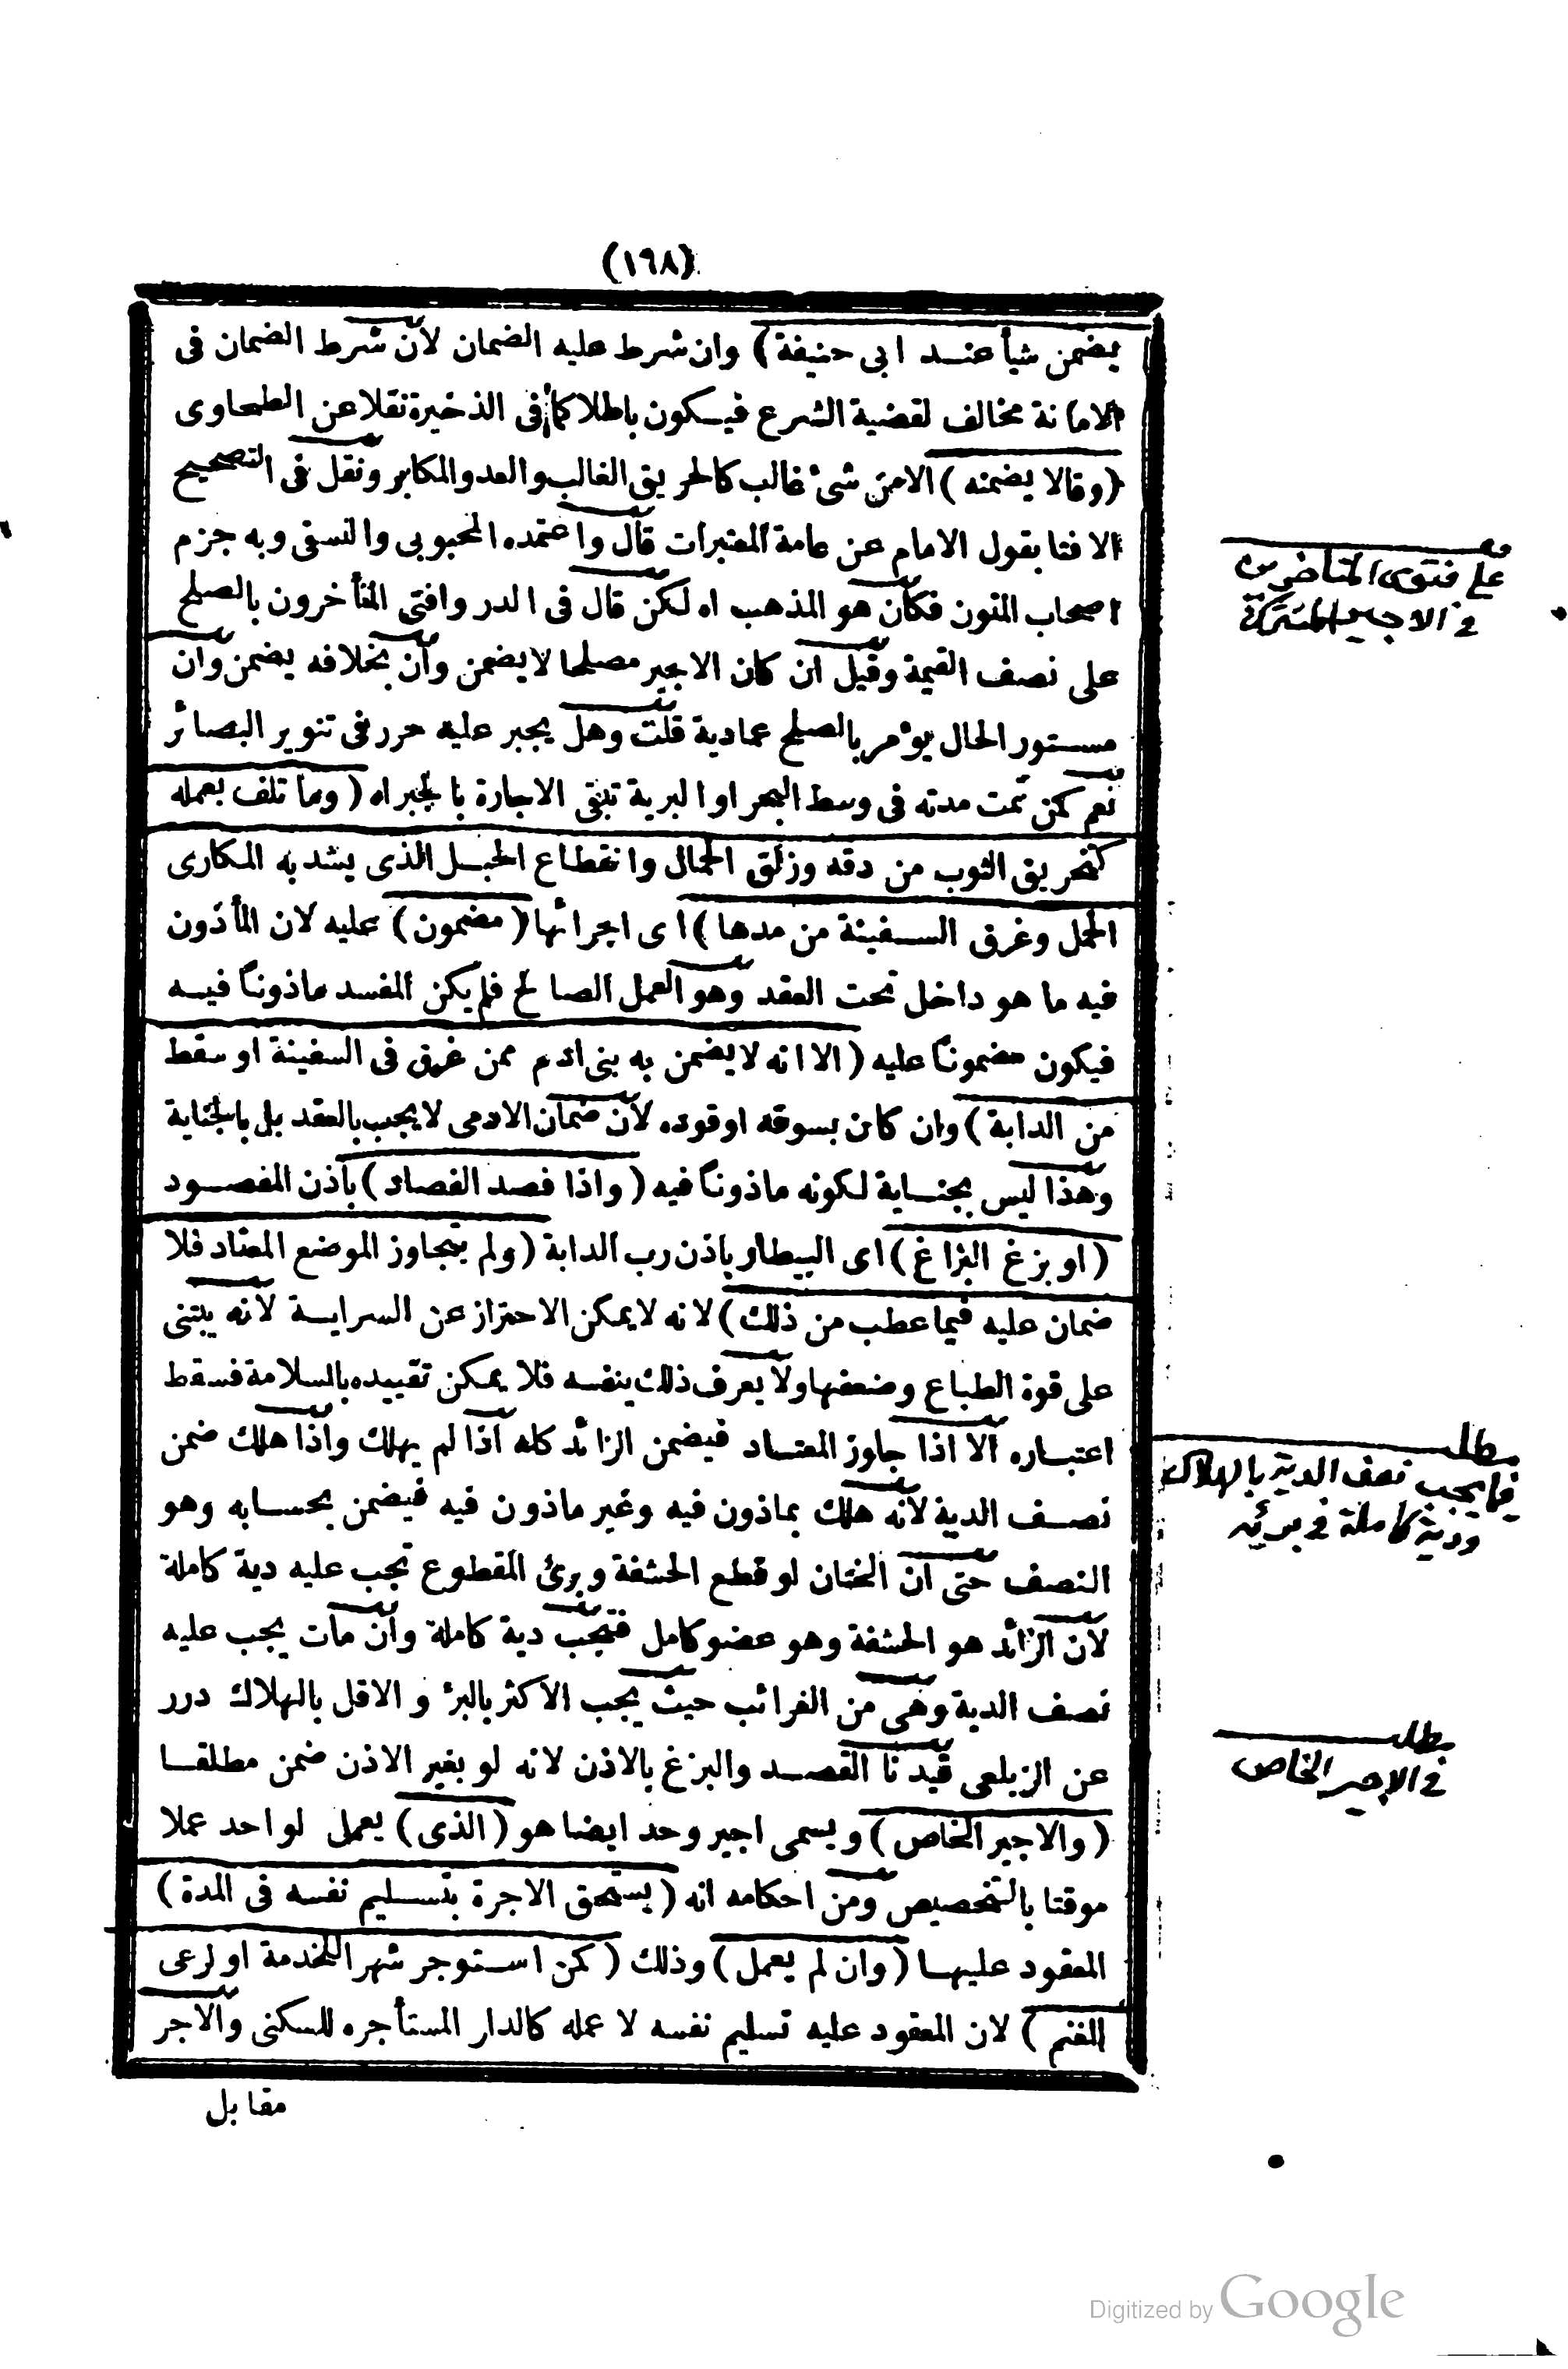 (١٦٨)
يضمن شيأ عند ابى حنيفة) وان شرط عليه الضمان لان شرط الضمان فى
الامانة مخالف لقضية الشرع فيكون باطلا كما فى الذخيرة نقلا عن الطحاوى
(وقالا يضمنه) الامن شىٔ غالب كالحريق الغالب والعدو المكابر ونقل فى التصحيح
الافتا بقول الامام عن عامة المعتبرات قال واعتمده المحبوبى والنسفى وبه جزم
اصحاب المتون فكان هو المذهب اه لكن قال فى الدر وافتى المتأخرون بالصلح
على نصف القيمة وقيل ان كان الاجير مصلحا لايضمن وان بخلافه يضمن وان
مستور الحال يؤمر بالصلح عمادية قلت وهل يجبر عليه حرر فى تنوير البصائر
نعم كمن تمت مدته فى وسط البحر او البرية تبقى الاجارة بالجبر اه (وما تلف بعمله
كتخريق الثوب من دقه وزلق الحمال وانقطاع الحبل الذى يشد به المكارى
الحمل وغرق السفينة من مدها) اى اجرائها (مضمون) عليه لان المأذون
فيه ما هو داخل تحت العقد وهو العمل الصالح فلم يكن المفسد ماذونا فيه
فيكون مضمونا عليه (الا انه لايضمن به بنى ادم ممن غرق فى السفينة او سقط
من الدابة) وان كان بسوقه اوقوده لان ضمان الادمى لايجب بالعقد بل بالجناية
وهذا ليس بجناية لكونه ماذونا فيه (واذا فصد الفصاد) باذن المفصود
(او بزغ البزاغ) اى البيطار باذن رب الدابة (ولم يتجاوز الموضع المعتاد فلا
ضمان عليه فيما عطب من ذلك) لانه لايمكن الاحتراز عن السراية لانه يبتنى
على قوة الطباع وضعفها ولا يعرف ذلك بنفسه فلا يمكن تقييده بالسلامة فسقط
اعتباره الا اذا جاوز المعتاد فيضمن الزائد كله اذا لم يهلك واذا هلك ضمن
نصف الدية لانه هلك بماذون فيه وغير ماذون فيه فيضمن بحسابه وهو
النصف حتى ان الختان لو قطع الحشفة وبرئ المقطوع تجب عليه دية كاملة
لان الزائد هو الحشفة وهو عضو كامل فتجب دية كاملة وان مات يجب عليه
نصف الدية وهى من الغرائب حيث يجب الاكثر بالبرٔ و الاقل بالهلاك درر
عن الزيلعى قيدنا الفصد والبزغ بالاذن لانه لو بغير الاذن ضمن مطلقا
(والاجير الخاص) ويسمى اجير وحد ايضا هو (الذى) يعمل لواحد عملا
موقتا بالتخصيص ومن احكامه انه (يستحق الاجرة بتسليم نفسه فى المدة)
المعقود عليها (وان لم يعمل) وذلك (كمن استوجر شهرا للخدمة او لرعى
الغنم) لان المعقود عليه تسليم نفسه لا عمله كالدار المستأجره للسكنى والاجر
مقابل
على فتوى المتاخرين
فى الاجير المشترك
مطلب
فيما يجب نصف الدية بالهلاك
ودية كاملة فى برئه
مطلب
فى الاجير الخاص
Digitized by Google